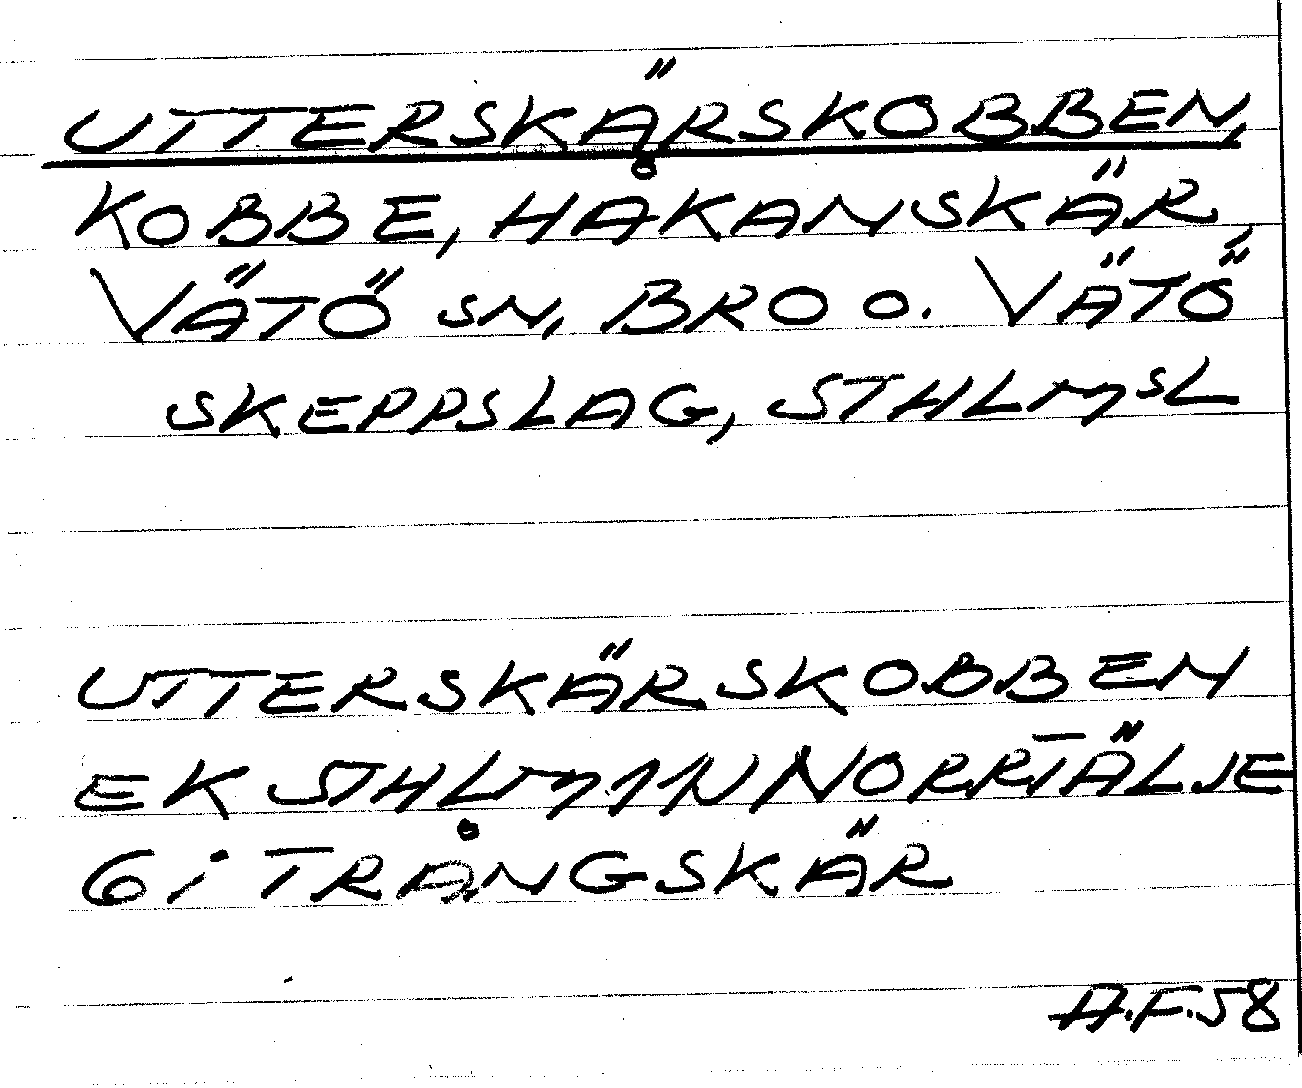 UTTERSKÄRSKOBBEN,
KOBBE, HÅKANSKÄR,
VÄTÖ SN, BRO O. VÄTÖ
SKEPPSLAG, STHLMSL
UTTERSKÄRSKOBBEN
EK STHLM NORRTÄLJE
6 i TRÅNGSKÄR
A.F.58